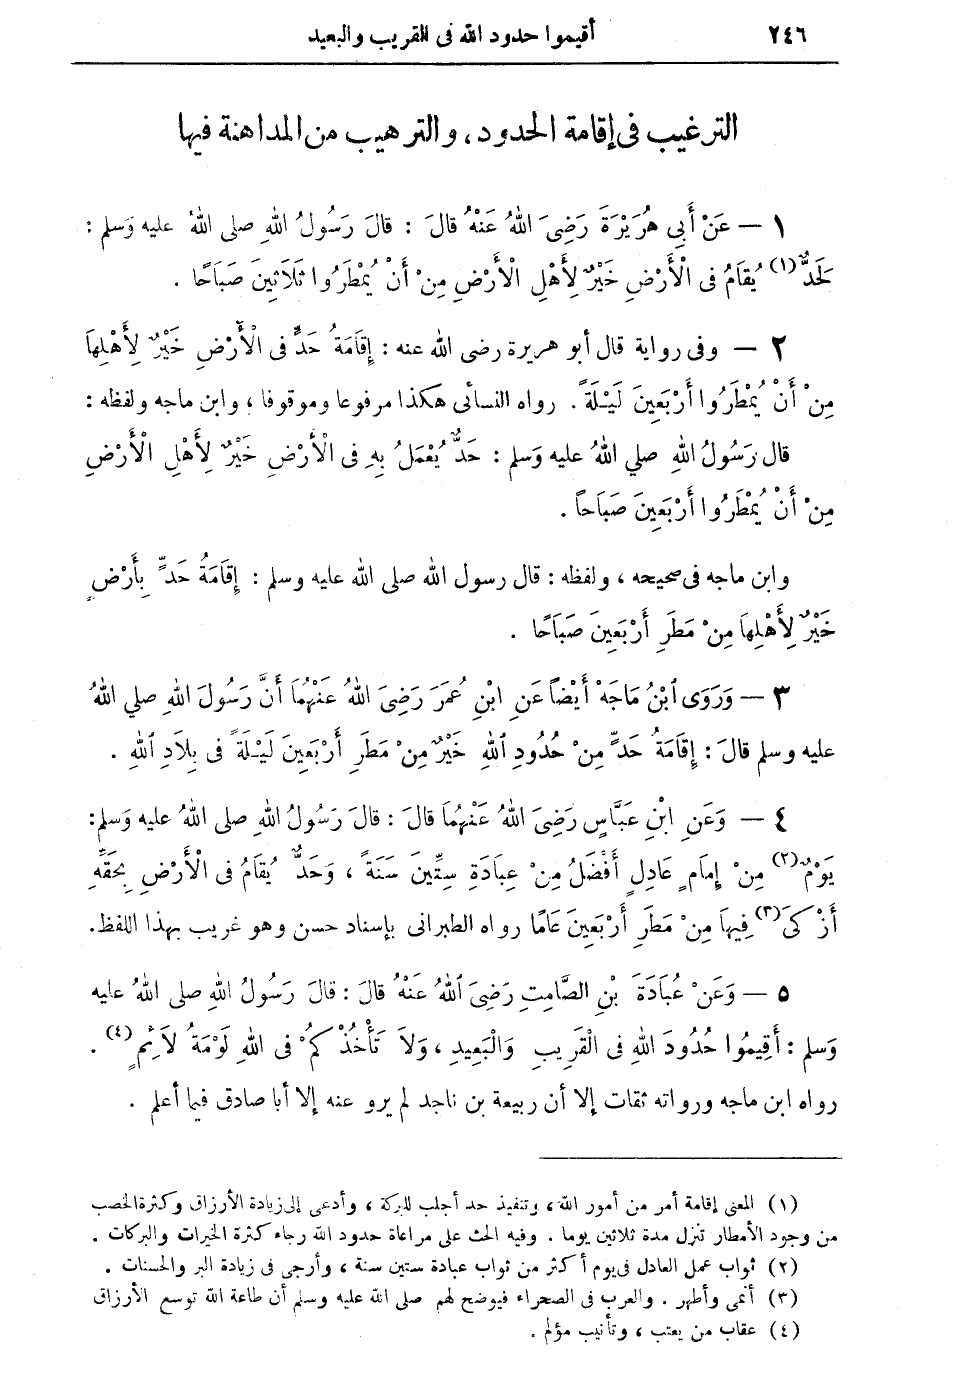 ٢٤٦ أقيموا حدود الله فى القريب والبعيد
الترغيب فى إقامة الحدود، والترهيب من المداهنة فيها
١ — عَنْ أَبِي هُرَيْرَةَ رَضِيَ اللهُ عَنْهُ قالَ : قالَ رَسُولُ اللهِ صلى اللهُ عليه وَسلم :
لَحَدٌّ (١) يُقَامُ فى الْأَرْضِ خَيْرٌ لِأَهْلِ الْأَرْضِ مِنْ أَنْ يُمْطَرُوا ثَلَاثِينَ صَبَاحًا .
٢ — وفى رواية قال أبو هريرة رضى الله عنه : إِقَامَةُ حَدٍّ فى الْأَرْضِ خَيْرٌ لِأَهْلِهَا
مِنْ أَنْ يُمْطَرُوا أَرْبَعِينَ لَيْلَةً . رواه النسائى هكذا مرفوعا وموقوفا ، وابن ماجه ولفظه :
قال رَسُولُ اللهِ صلي اللهُ عليه وَسلم : حَدٌّ يُعْمَلُ بِهِ فى الْأَرْضِ خَيْرٌ لِأَهْلِ الْأَرْضِ
مِنْ أَنْ يُمْطَرُوا أَرْبَعِينَ صَبَاحاً .
وابن ماجه فى صحيحه ، ولفظه : قال رسول الله صلى الله عليه وسلم : إِقَامَةُ حَدٍّ بِأَرْضٍ
خَيْرٌ لِأَهْلِهَا مِنْ مَطَرِ أَرْبَعِينَ صَبَاحًا .
٣ — وَرَوَى ابْنُ مَاجَهْ أَيْضاً عَنِ ابْنِ عُمَرَ رَضِيَ اللهُ عَنْهُمَا أَنَّ رَسُولَ اللهِ صلي اللهُ
عليه وسلم قالَ : إِقَامَةُ حَدٍّ مِنْ حُدُودِ اللهِ خَيْرٌ مِنْ مَطَرِ أَرْبَعِينَ لَيْلَةً فى بِلَادِ اللهِ .
٤ — وَعَنِ ابْنِ عَبَّاسٍ رَضِيَ اللهُ عَنْهُمَا قالَ : قالَ رَسُولُ اللهِ صلى اللهُ عليه وَسلم :
يَوْمٌ (٢) مِنْ إِمَامٍ عَادِلٍ أَفْضَلُ مِنْ عِبَادَةِ سِتِّينَ سَنَةً ، وَحَدٌّ يُقَامُ فى الْأَرْضِ بِحَقِّهِ
أَزْكَى (٣) فِيهَا مِنْ مَطَرِ أَرْبَعِينَ عَامًا رواه الطبرانى بإسناد حسن وهو غريب بهذا اللفظ.
٥ — وَعَنْ عُبَادَةَ بْنِ الصَّامِتِ رَضِيَ اللهُ عَنْهُ قالَ : قالَ رَسُولُ اللهِ صلى اللهُ عليه
وَسلم : أَقِيمُوا حُدُودَ اللهِ فى الْقَرِيبِ وَالْبَعِيدِ ، وَلاَ تَأْخُذْكُمْ فى اللهِ لَوْمَةُ لاَئِمٍ (٤) .
رواه ابن ماجه ورواته ثقات إلا أن ربيعة بن ناجد لم يرو عنه إلا أبا صادق فيما أعلم .
(١) المعنى إقامة أمر من أمور الله ، وتنفيذ حد أجلب للبركة ، وأدعى إلى زيادة الأرزاق وكثرة الخصب
من وجود الأمطار تنزل مدة ثلاثين يوما . وفيه الحث على مراعاة حدود الله رجاء كثرة الخيرات والبركات .
(٢) ثواب عمل العادل فى يوم أكثر من ثواب عبادة ستين سنة ، وأرجى فى زيادة البر والحسنات .
(٣) أنمى وأطهر . والعرب فى الصحراء فيوضح لهم صلى الله عليه وسلم أن طاعة الله توسع الأرزاق
(٤) عقاب من يعتب ، وتأنيب مؤلم .